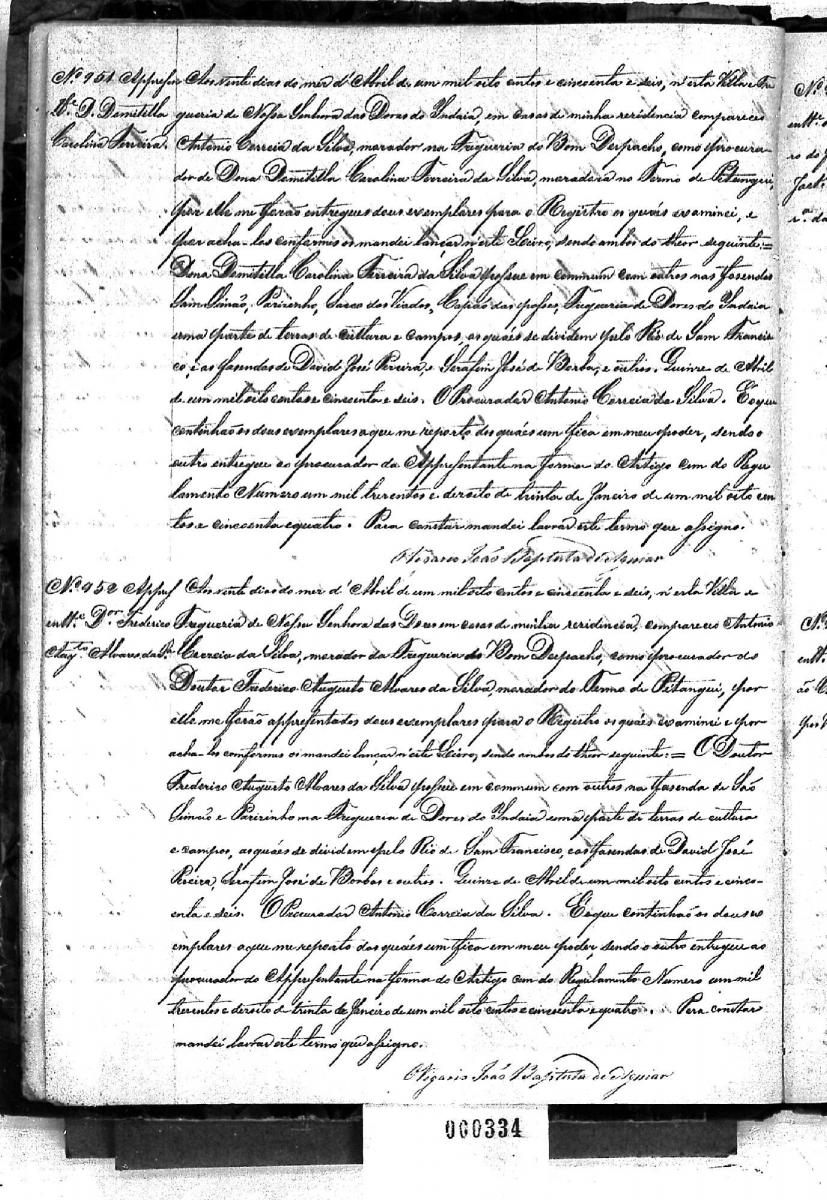 Nº 951 Appresen
tte D. Demitilla
Carolina Ferreira.
Aos vinte dias do mez d'Abril de um mil oito centos e cincoenta e seis, n'esta Villa e Fre
gueria de Nossa Senhora das Dores do Indaia, em casas de minha rezidencia compareceo
Antonio Correia da Silva, morador na Fregueria do Bom Despacho, como procura-
dor de Dona Demitilla Carolina Ferreira da Silva, moradora no Termo de Pitangui,
por elle me forão entregues dous exemplares para o Registro os quáes examinei, e
por acha-los conformes os mandei lançar n'este Livro, sendo ambos do theor seguinte: =
Dona Demitilla Carolina Ferreira da Silva possue em commum com outros nas fasendas
Sam Simão, Parizinho, Sacco dos Viados, Capão das posses, Fregueria de Dores do Indaia
uma parte de terras de cultura e campos, as quáes se dividem pelo Rio de Sam Francis
co, e as fasendas de David José Pereira, e Serafim José de Borba, e outros. Quinze de Abril
de um mil oito centos e cincoenta e seis. O Procurador Antonio Correia da Silva. E o que
continhão os dous exemplares a que me reporto dos quáes um fica em meu poder, sendo o
outro entregue ao procurador da Appresentante na forma do Artigo cem do Regu
lamento Numero um mil trezentos e dezoito de trinta de Janeiro de um mil oito cen
tos e cincoenta e quatro. Para constar mandei lavrar este termo que assigno.
O Vigario João Baptista de Aguiar
Nº 952 Appres
entte. Dor. Frederico
Augto. Alvares da Sa.
Aos vinte dias do mez d'Abril de um mil oito centos e cincoenta e seis, n'esta Villa e
Fregueria de Nossa Senhora das Dores em casas de minha rezidencia, compareceo Antonio
Correia da Silva, morador da Fregueria do Bom Despacho, como procurador do
Doutor Frederico Augusto Alvares da Silva morador do Termo de Pitangui, por
elle me forão appresentados dous exemplares para o Registro os quáes examinei e por
acha-los conformes os mandei lançar n'este Livro, sendo ambos do theor seguinte: = O Doutor
Frederico Augusto Alvares da Silva possue em commum com outros na fasenda de São
Simão e Parizinho na Fregueria de Dores do Indaia uma parte de terras de cultura
e campos, as quáes se dividem pelo Rio de Sam Francisco, e as fasendas de David José
Pereira, Serafim José de Borbas e outros. Quinze de Abril de um mil oito centos e cinco-
enta e seis. O Procurador Antonio Correia da Silva. E o que continhão os dous ex
emplares a que me reporto dos quáes um fica em meu poder, sendo o outro entregue ao
procurador do Appresentante na forma do Artigo cem do Regulamento Numero um mil
trezentos e dezoito de trinta de Janeiro de um mil oito centos e cincoenta e quatro. Para constar
mandei lavrar este termo que assigno.
O Vigario João Baptista de Aguiar
000334